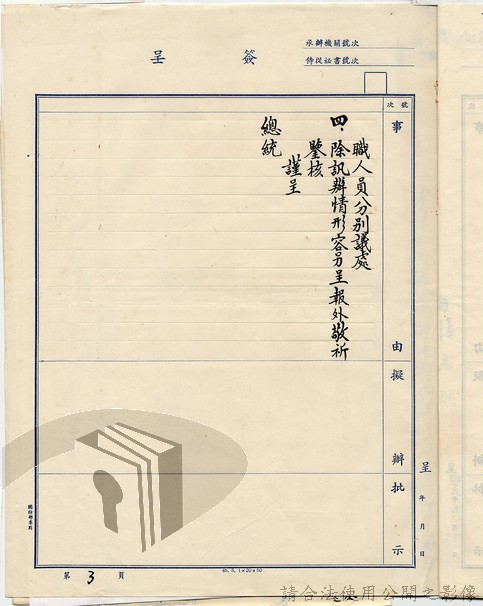 簽呈
承辦機關號次
侍從祕書號次
號次
事由
擬辦
批示
職人員分別議處
四、除訊辦情形容另呈報外敬祈
鑒核
謹呈
總統
呈
年月日
第3頁
45.5.1×20×50
請合法使用公開之影像